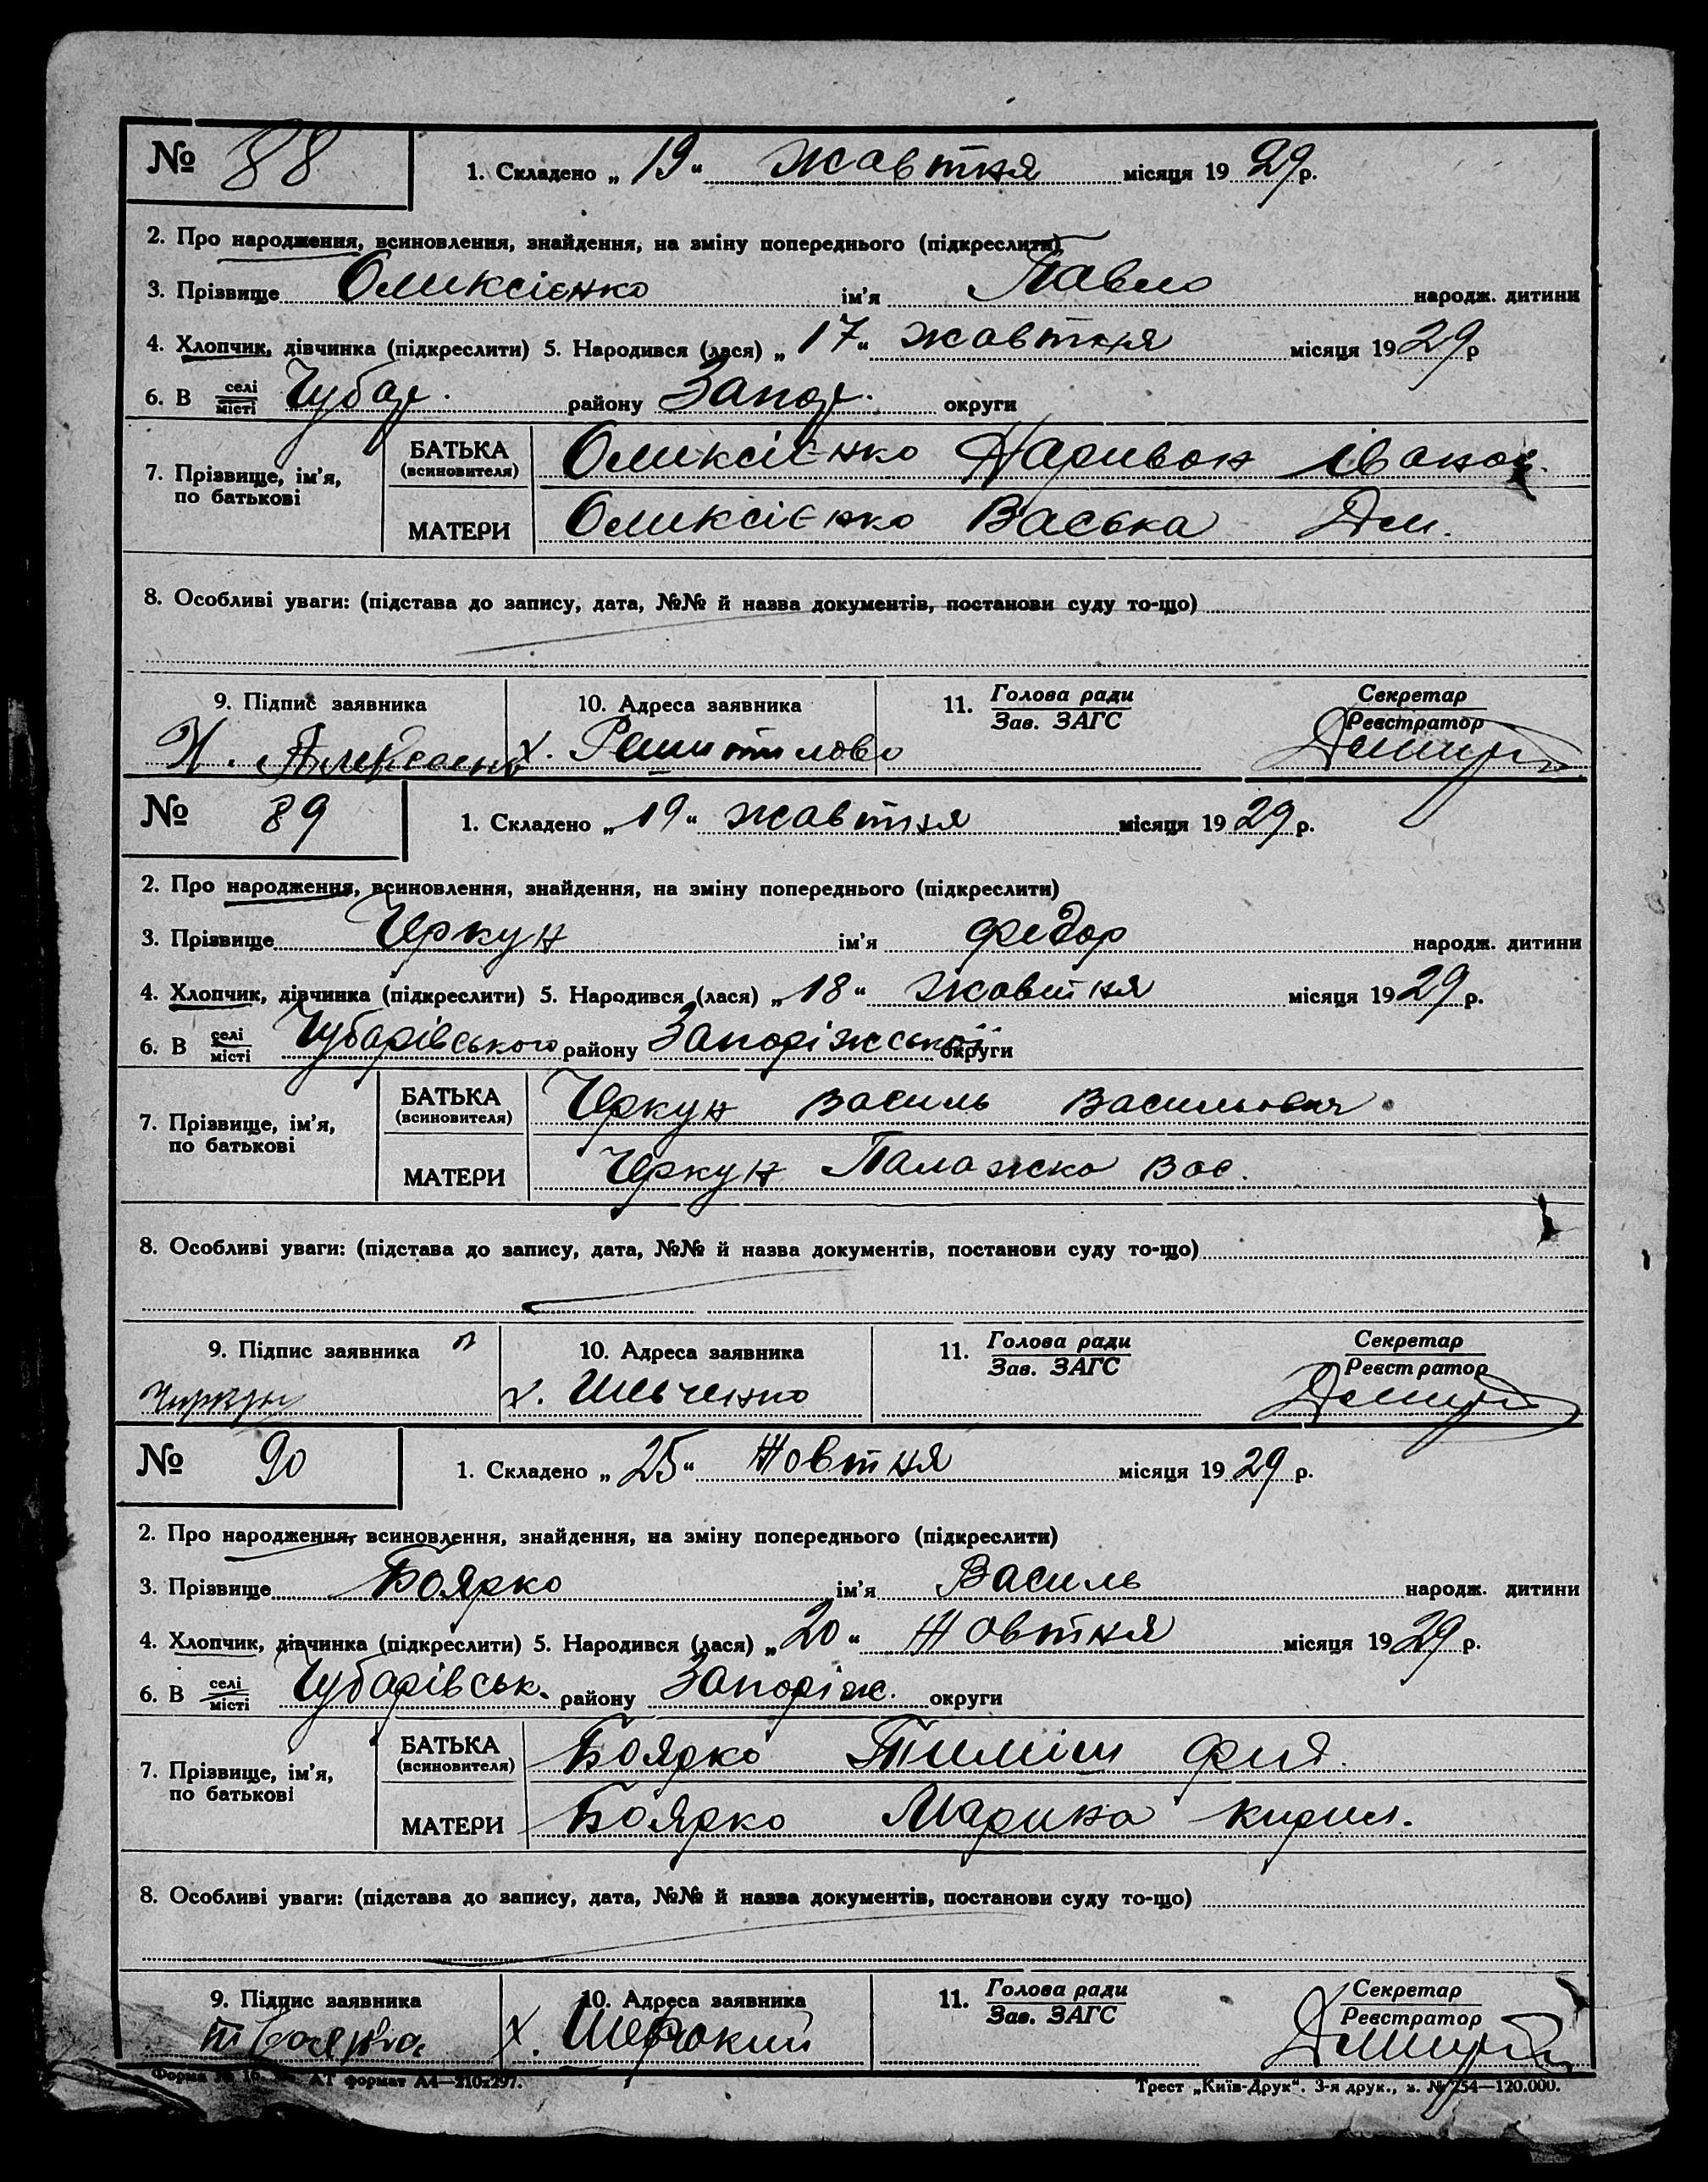 № 88 1. Складено „19" жавтня місяця 1929 р.
2. Про народження, всиновлення, знайдення, на зміну попереднього (підкреслити)
3. Прізвище Оликсієнко ім'я Павло народж. дитини
4. Хлопчик, дівчинка (підкреслити) 5. Народився (лася) „17" жавтня місяця 1929 р
6. В селі місті Чубар. району Запор. округи
7. Прізвище, ім'я, по батькові
БАТЬКА (всиновителя) Оликсієнко Іванов.
МАТЕРИ Оликсієнко Васька Дм.
8. Особливі уваги: (підстава до запису, дата, №№ й назва документів, постанови суду то-що)
9. Підпис заявника 10. Адреса заявника 11. Голова ради Зав. ЗАГС Секретар Реєстратор
х. Решитилово
№ 89 1. Складено „19" жавтня місяця 1929 р.
2. Про народження, всиновлення, знайдення, на зміну попереднього (підкреслити)
3. Прізвище Черкун ім'я Федор народж. дитини
4. Хлопчик, дівчинка (підкреслити) 5. Народився (лася) „18" жавтня місяця 1929 р.
6. В селі місті Чубарівського району Запоріжської округи
7. Прізвище, ім'я, по батькові
БАТЬКА (всиновителя) Черкун Василь Васильович
МАТЕРИ Черкун Палажка Вас.
8. Особливі уваги: (підстава до запису, дата, №№ й назва документів, постанови суду то-що)
9. Підпис заявника 10. Адреса заявника 11. Голова ради Зав. ЗАГС Секретар Реєстратор
х. Шевченко
№ 90 1. Складено „25" Жовтня місяця 1929 р.
2. Про народження, всиновлення, знайдення, на зміну попереднього (підкреслити)
3. Прізвище Боярко ім'я Василь народж. дитини
4. Хлопчик, дівчинка (підкреслити) 5. Народився (лася) „20" Жовтня місяця 1929 р.
6. В селі місті Чубарівськ. району Запоріж. округи
7. Прізвище, ім'я, по батькові
БАТЬКА (всиновителя) Боярко Тиміш
МАТЕРИ Боярко Марина Кирил.
8. Особливі уваги: (підстава до запису, дата, №№ й назва документів, постанови суду то-що)
9. Підпис заявника 10. Адреса заявника 11. Голова ради Зав. ЗАГС Секретар Реєстратор
х. Широкий
Форма № 16. АТ формат А4—210x297. Трест „Київ-Друк". 3-я друк., з. № 254—120.000.